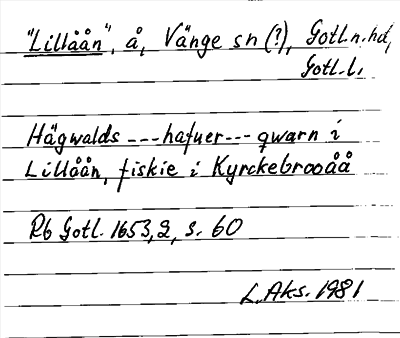 "Lillåån", å, Vänge sn (?), Gotl. n. hd,
Gotl. l.
Hägwalds --- hafuer --- qwarn i
Lillåån, fiskie i Kyrckebrooåå
Rb Gotl. 1653, 2, s. 60
L. Aks. 1981